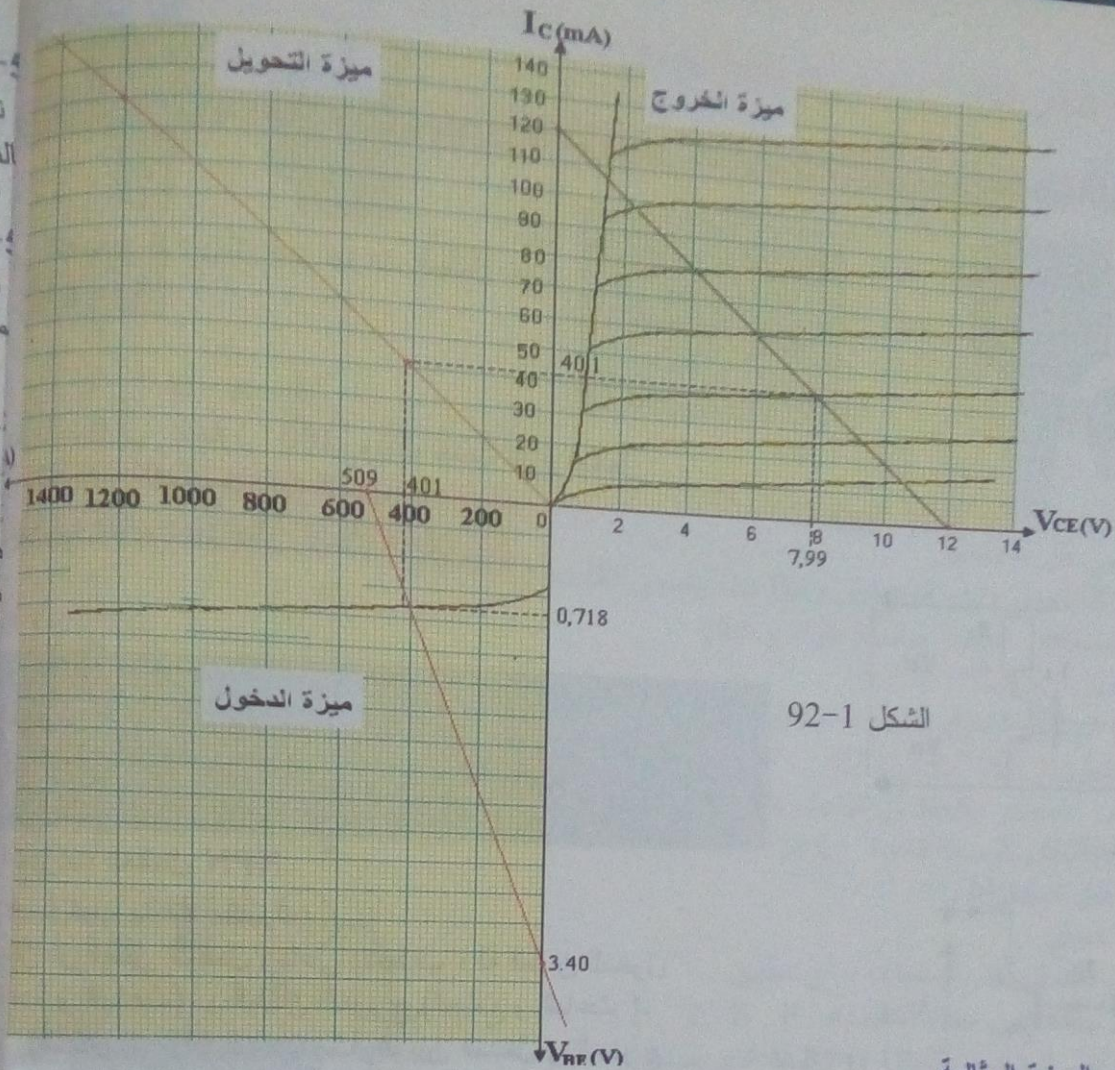 IC(mA)
ميزة التحويل
ميزة الخروج
140
130
120
110
100
90
80
70
60
50
40
30
20
10
40,1
509
401
1400 1200 1000 800 600 400 200 0
2 4 6 8 10 12 14
VCE(V)
7,99
0,718
ميزة الدخول
الشكل 1-92
3.40
VBE(V)